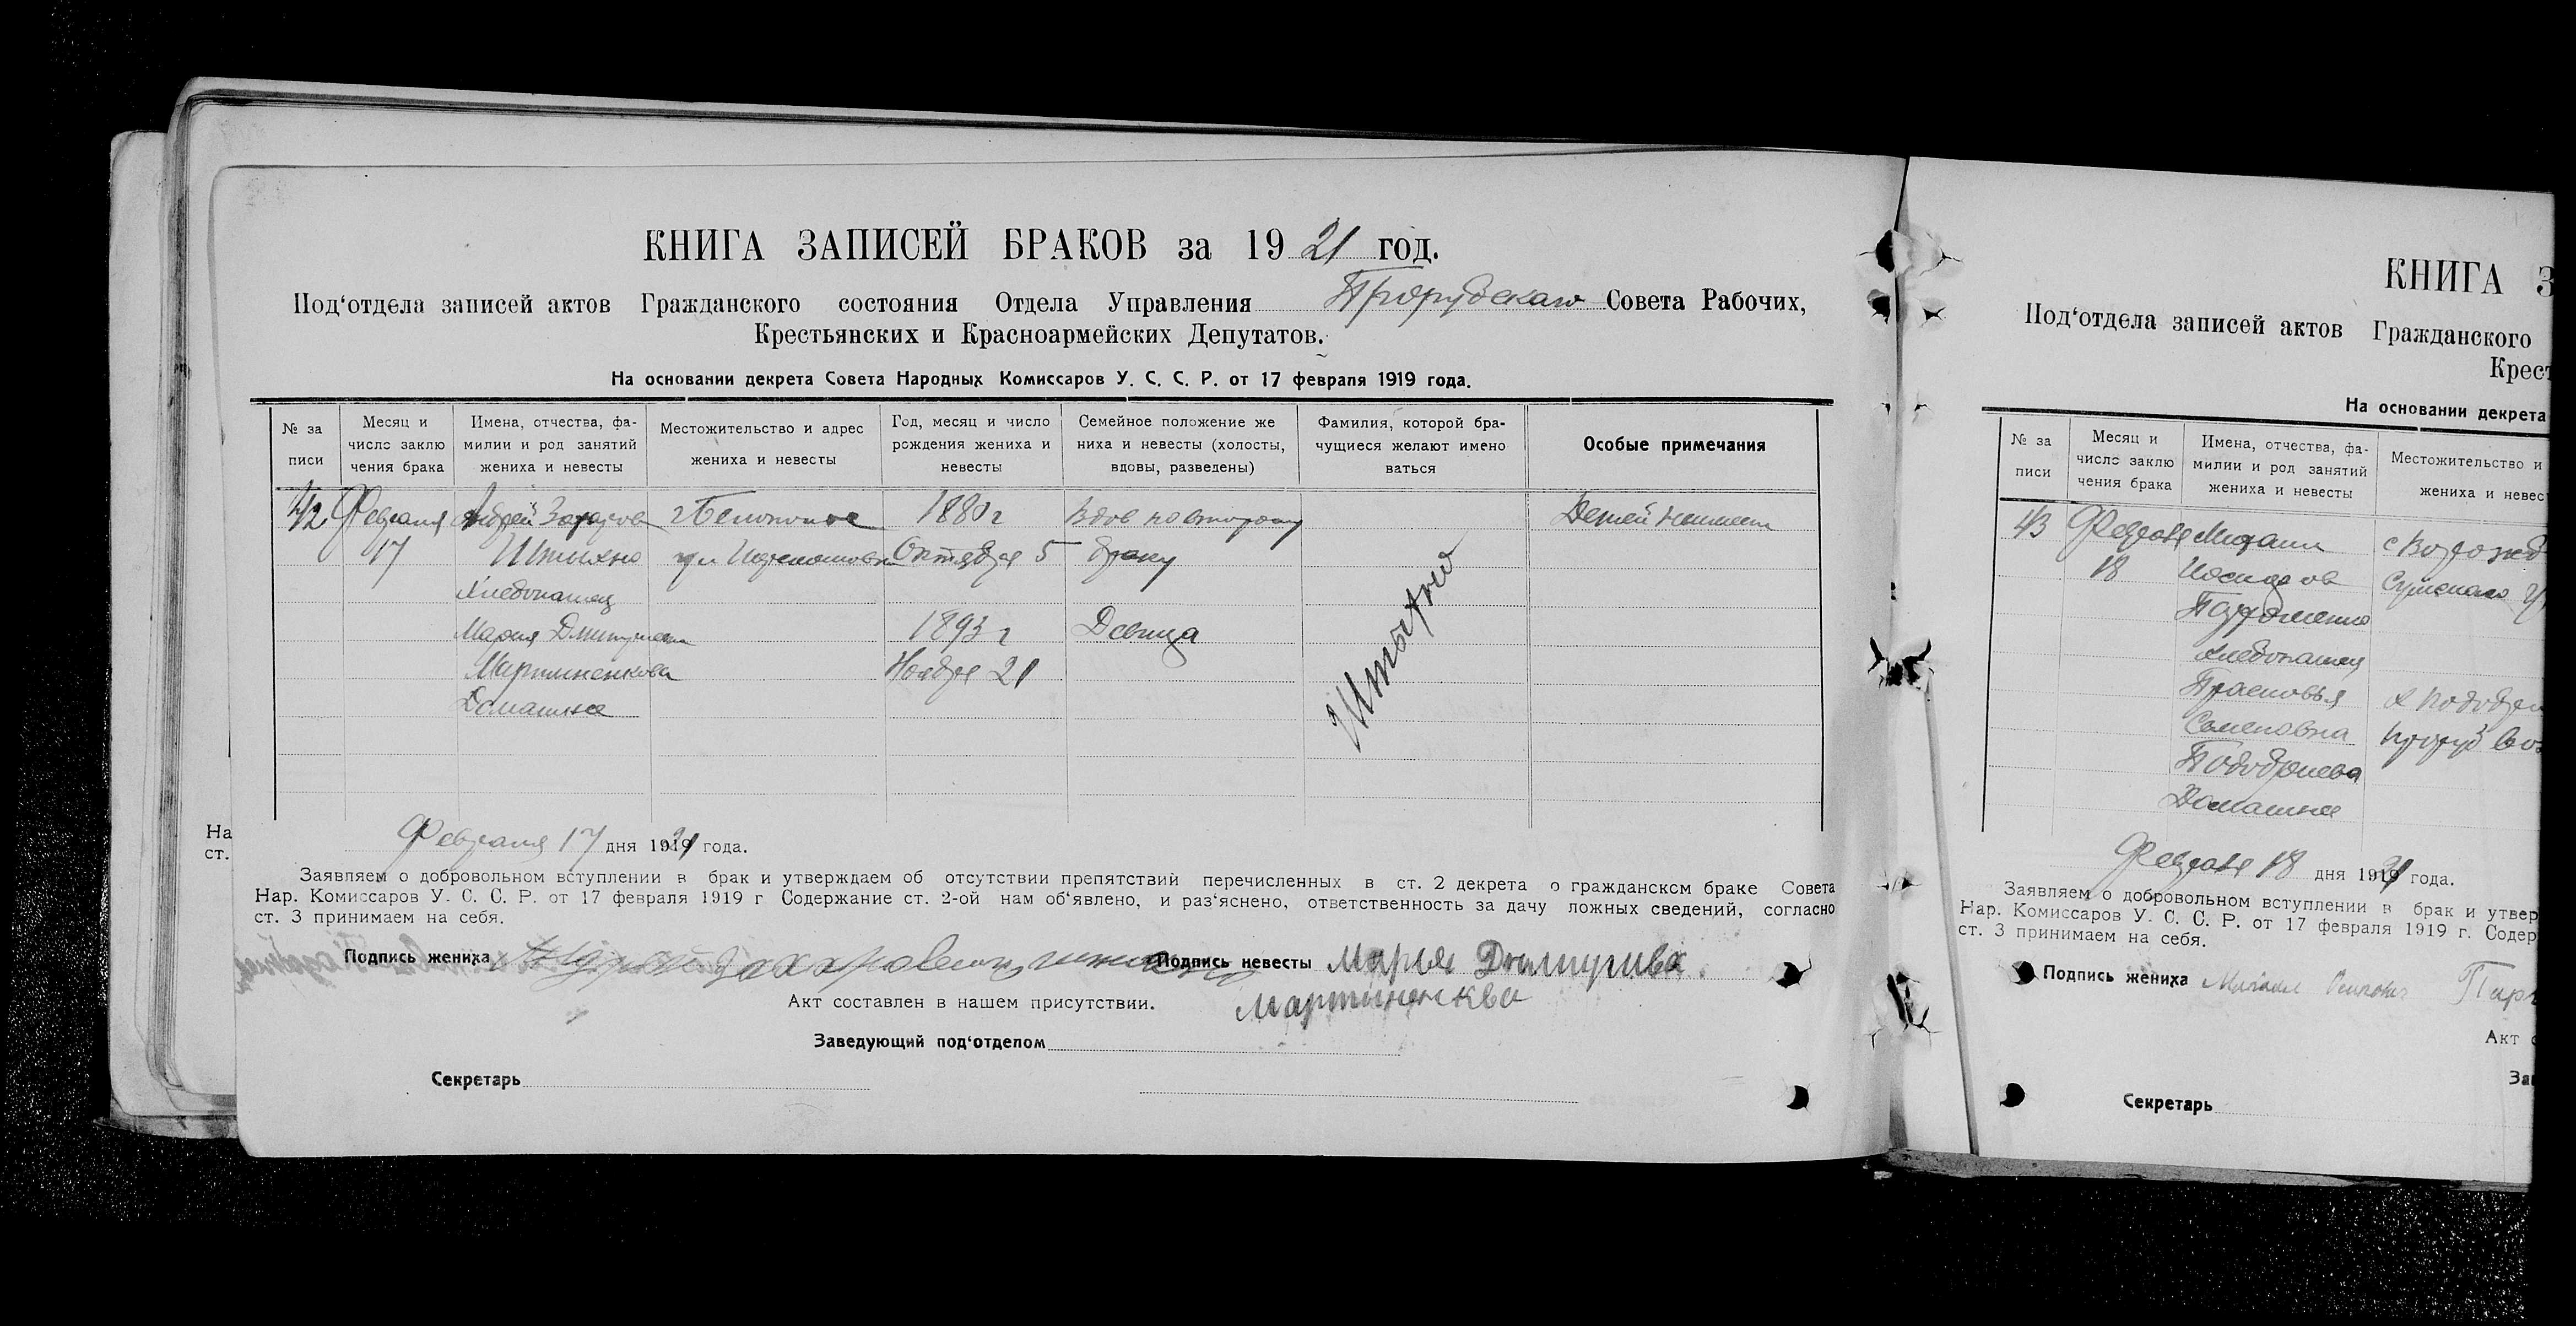 КНИГА ЗАПИСЕЙ БРАКОВ за 1921 год.
Под‘отдела записей актов Гражданского состояния Отдела Управления Прорубскаго Совета Рабочих,
Крестьянских и Красноармейских Депутатов.
На основании декрета Совета Народных Комиссаров У. С. С. Р. от 17 февраля 1919 года.
№ за
писи
Месяц и
число заклю
чения брака
Имена, отчества, фа-
милии и род занятий
жениха и невесты
Местожительство и адрес
жениха и невесты
Год, месяц и число
рождения жениха и
невесты
Семейное положение же
ниха и невесты (холосты,
вдовы, разведены)
Фамилия, которой бра-
чущиеся желают имено
ваться
Особые примечания
42
Февраля
17
Андрей Захаров
Хлебопашец
Мария Дмитриева
Мартиненкова
Домашнее
г Белополье
ул
1880 г
Октября 5
1893 г
Ноября 21
Вдов по второму
браку
Девица
Детей неимеет
Февраля 17 дня 1921 года.
Заявляем о добровольном вступлении в брак и утверждаем об отсутствии препятствий перечисленных в ст. 2 декрета о гражданском браке Совета
Нар. Комиссаров У. С. С. Р. от 17 февраля 1919 г Содержание ст. 2-ой нам об‘явлено, и раз‘яснено, ответственность за дачу ложных сведений, согласно
ст. 3 принимаем на себя.
Подпись жениха Подпись невесты Мария Дмитрива
Мартиненква
Акт составлен в нашем присутствии.
Заведующий под‘отделом
Секретарь
На
ст.
КНИГА З
Под‘отдела записей актов Гражданского
Крест
На основании декрета
№ за
писи
Месяц и
число заклю
чения брака
Имена, отчества, фа-
милии и род занятий
жениха и невесты
Местожительство и
жениха и невес
43
Февраля
18
Михаил
Иосифов
Пархоменко
Хлебопашец
Прасковья
Семеновна
Домашнее
Сумскаго
Февраля 18 дня 1921 года.
Заявляем о добровольном вступлении в брак и утвер
Нар. Комиссаров У. С. С. Р. от 17 февраля 1919 г. Содер
ст. 3 принимаем на себя.
Подпись жениха Михаил Осипович Парх
Акт с
За
Секретарь